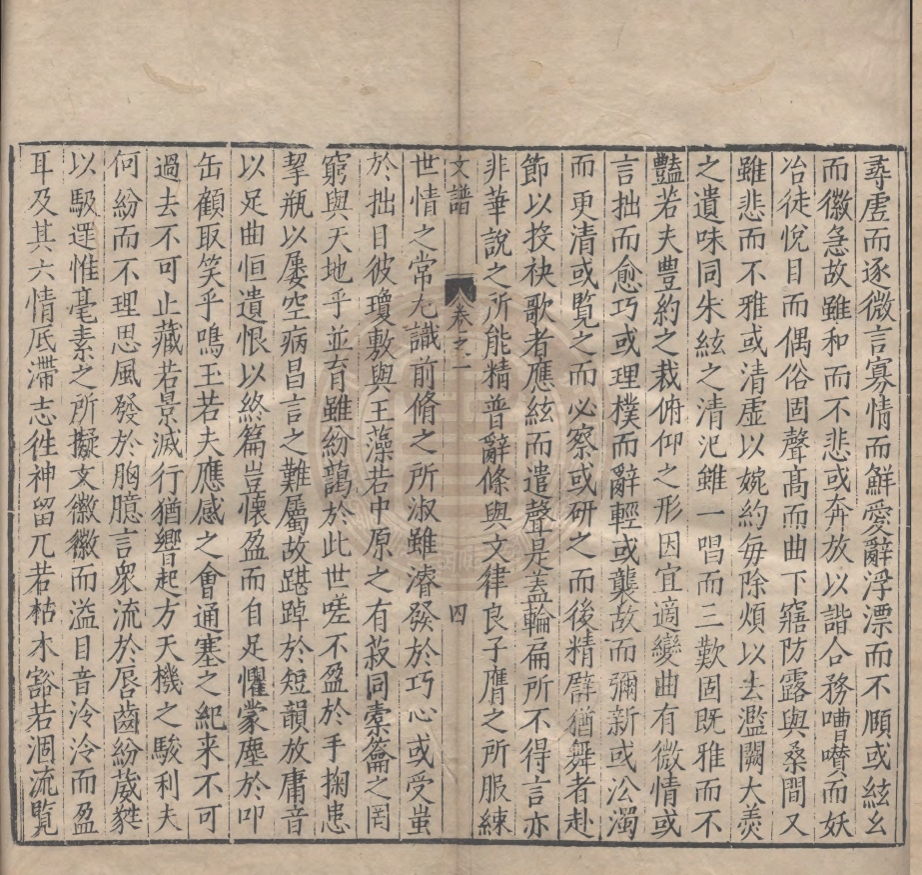 尋虛而逐微言寡情而鮮愛辭浮漂而不願或絃幺
而徽急故雖和而不悲或奔放以諧合務嘈囋而妖
冶徒悅目而偶俗固聲髙而曲下寤防露與桑間又
雖悲而不雅或清虛以婉約每除煩以去濫闕大羹
之遺味同朱絃之清氾雖一唱而三歎固既雅而不
豔若夫豊約之裁俯仰之形因宜適變曲有微情或
言拙而愈巧或理樸而辭輕或襲故而彌新或㳂濁
而更清或覧之而必察或研之而後精譬猶舞者赴
節以投袂歌者應絃而遣聲是蓋輪扁所不得言亦
非華說之所能精普辭條與文律良子膺之所服練
文譜 卷之一 四
世情之常尤識前脩之所淑雖濬發於巧心或受蚩
於拙目彼瓊敷與玉藻若中原之有菽同橐籥之罔
窮與天地乎並育雖紛藹於此世嗟不盈於手掬患
挈瓶以屢空病昌言之難屬故踸踔於短韻放庸音
以足曲恒遺恨以終篇豈懷盈而自足懼蒙塵於叩
缶顧取笑乎鳴玉若夫應感之會通塞之紀来不可
過去不可止藏若景滅行猶響起方天機之駿利夫
何紛而不理思風發於胸臆言眾流於唇齒紛葳蕤
以馺遝惟毫素之所擬文徽徽而溢目音泠泠而盈
耳及其六情底滯志徃神留兀若枯木豁若涸流覧